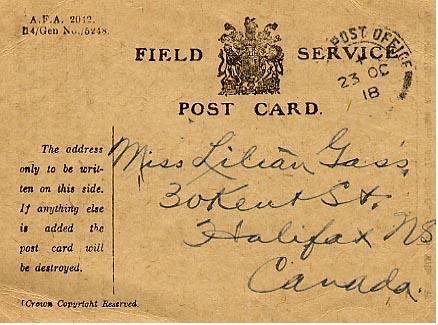 A.F.A. 2042.
114/Gen No./5248.
FIELD SERVICE
POST OFFICE
23 OC
18
POST CARD.
The address
only to be writ-
ten on this side.
If anything else
is added the
post card will
be destroyed.
Miss Lilian Gass,
30 Kent St.
Halifax NS
Canada.
[Crown Copyright Reserved.